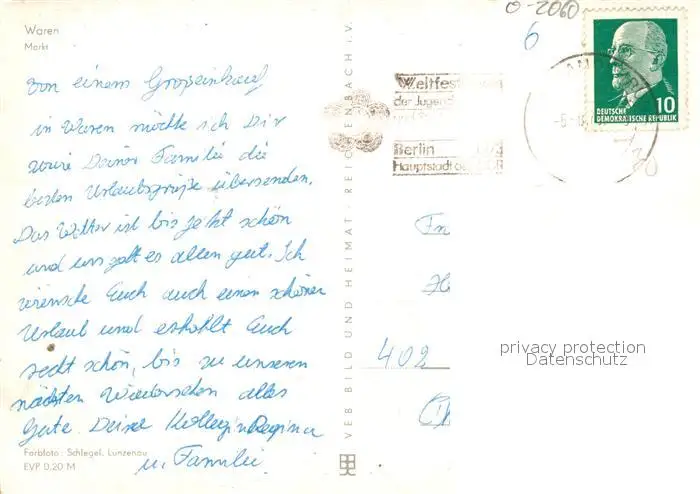 Waren
Markt
Von einem Großeinkauf
in Waren möchte ich Dir
sowie Deiner Familie die
besten Urlaubsgrüße übersenden.
Das Wetter ist bis jetzt schön
und uns geht es allen gut. Ich
wünsche Euch auch einen schönen
Urlaub und erhohlt Euch
recht schön, bis zu unserem
nächsten Wiedersehen alles
Gute Deine Kollegin Regina
u. Familie
Farbfoto: Schlegel, Lunzenau
EVP 0,20 M
VEB BILD UND HEIMAT · REICHENBACH i. V.
0-2060
6
Weltfes
der Jugend
Berlin
Hauptstadt de
10
DEUTSCHE
DEMOKRATISCHE REPUBLIK
402
privacy protection
Datenschutz